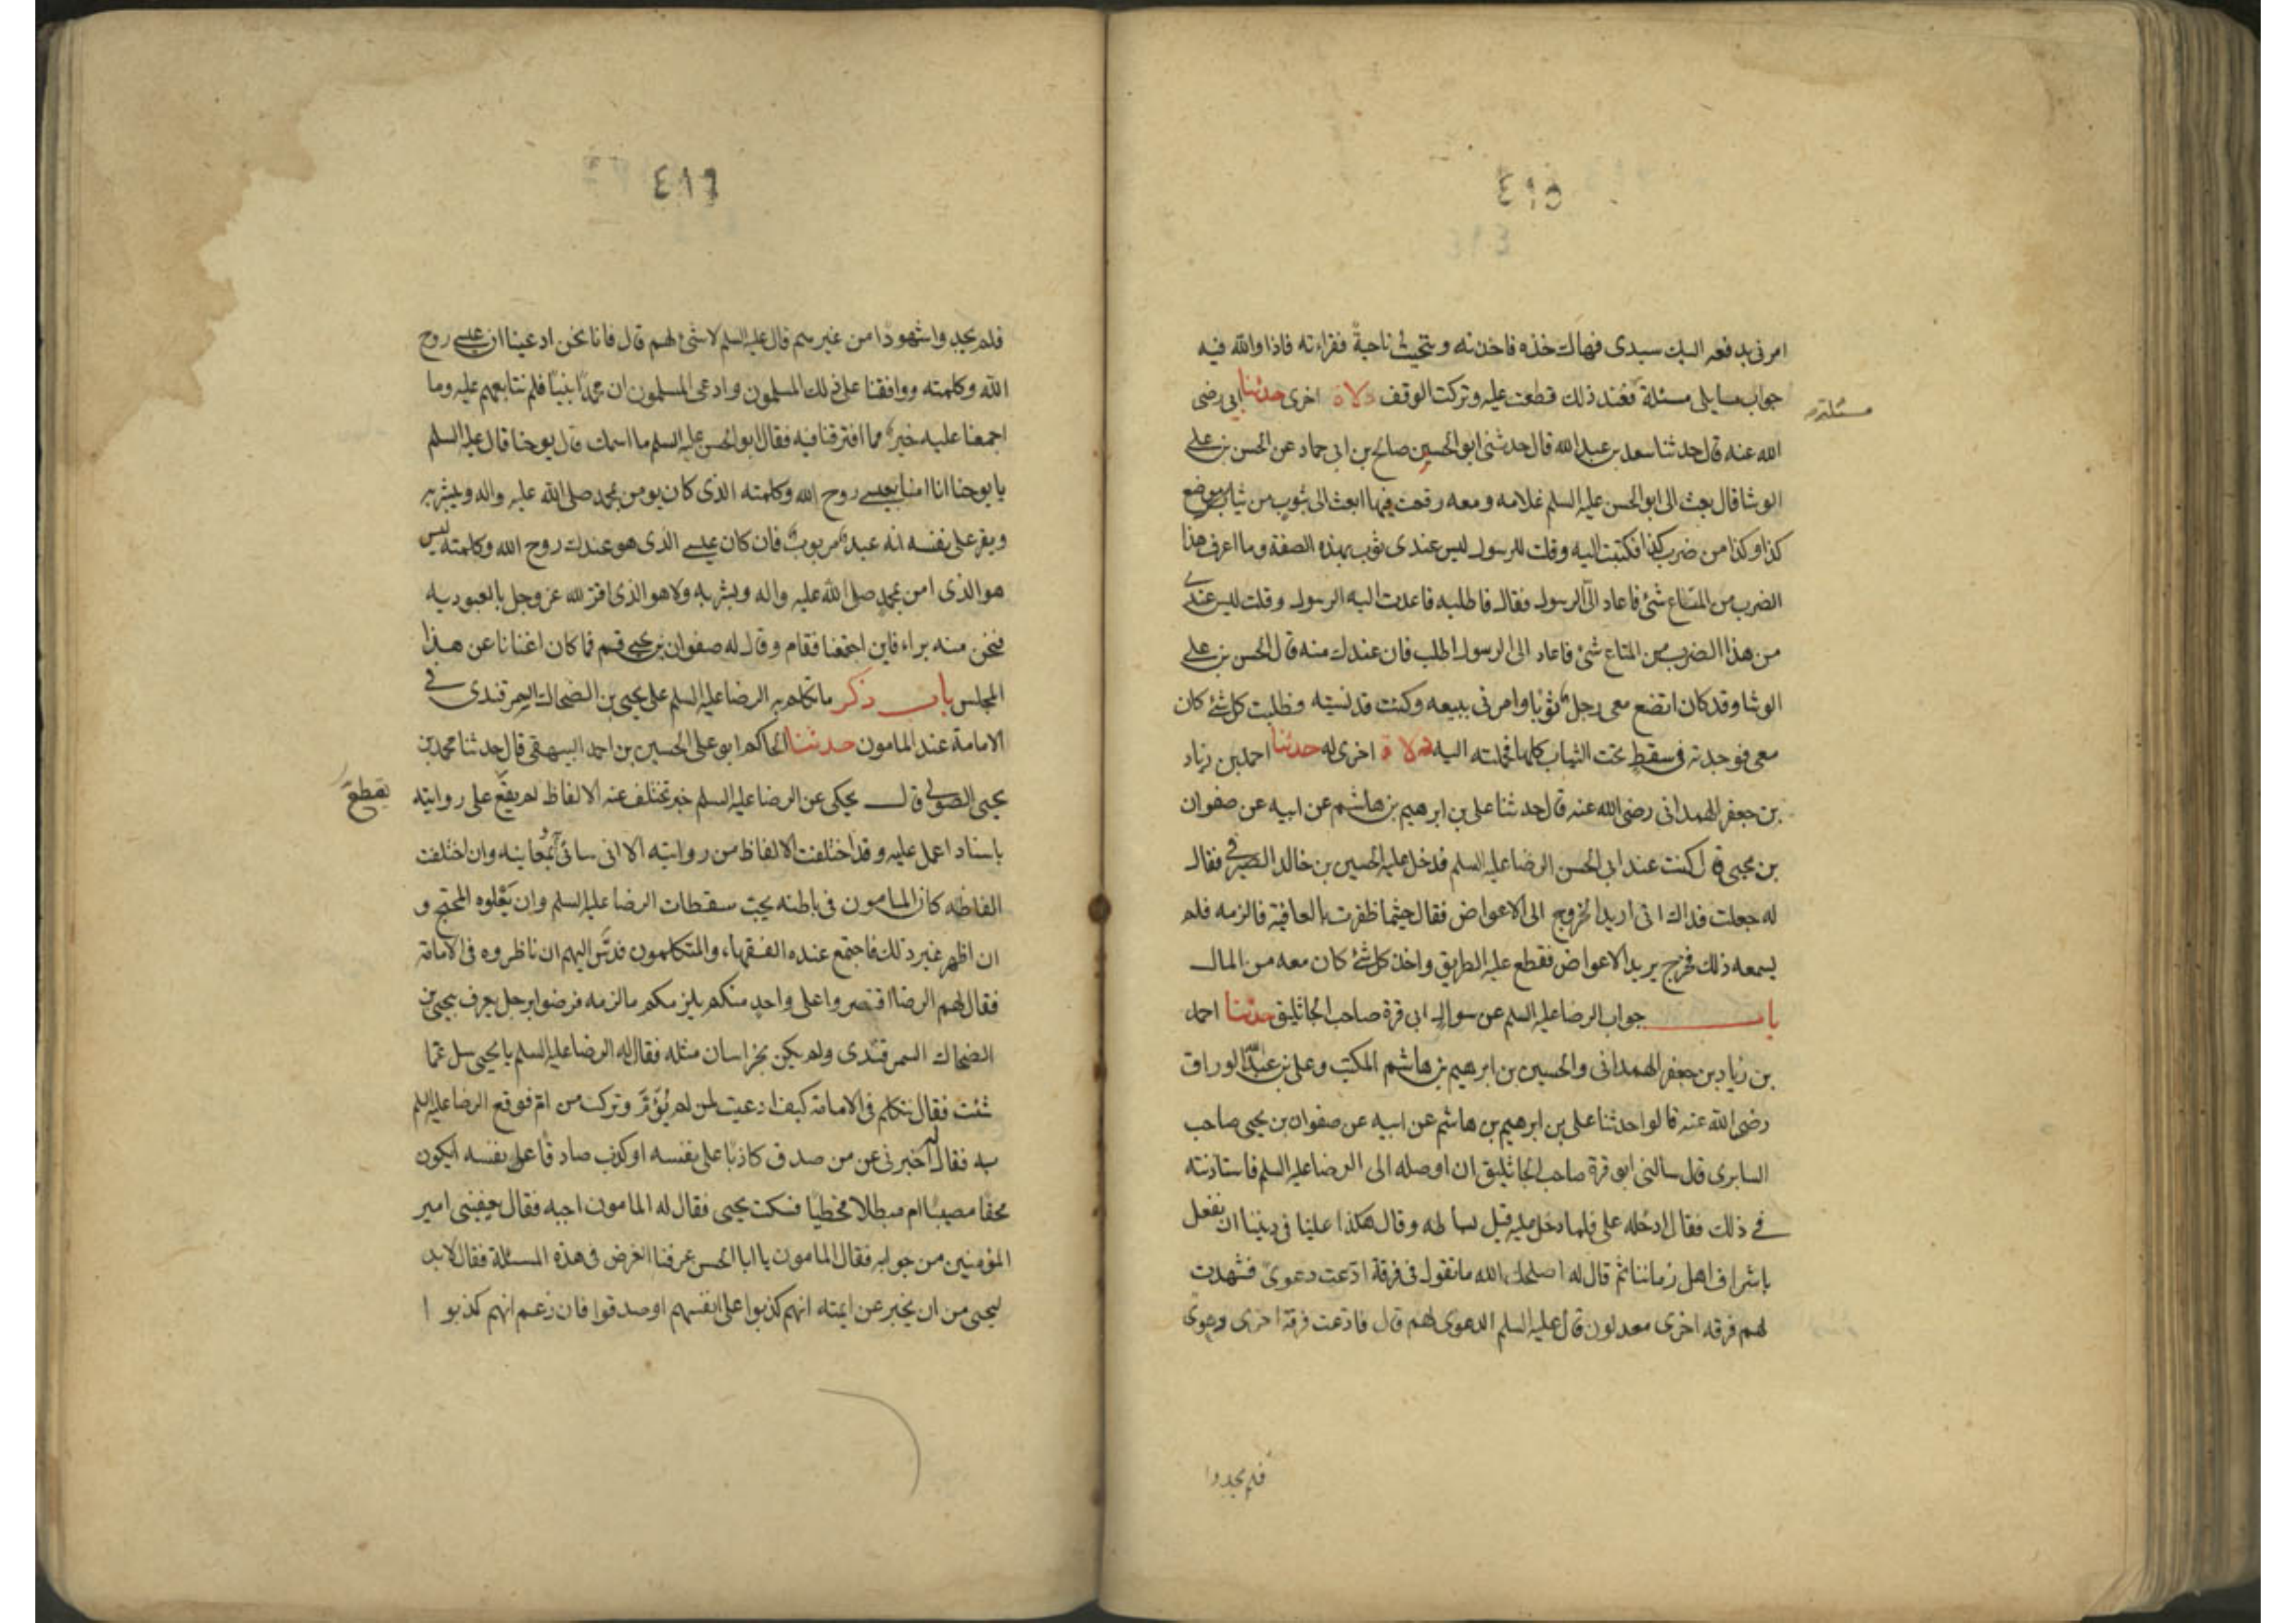 ٤١٥
امرنى بدفعه اليك سيدى فهاك خذه فاخذته وتنحيت ناحية فقراءته فاذا والله فيه
جواب مسايلى مسئلة فعند ذلك قطعت عليه وتركت الوقف دلالة اخرى حدثنا ابى رضى
مسئلة
الله عنه قال حدثنا سعد بن عبد الله قال حدثنى ابو الحسين صالح بن ابى حماد عن الحسن بن على
الوشا قال بعث الى ابو الحسن عليه السلم غلامه ومعه رقعة فيها ابعث الى بثوب من ثياب موضع
كذا وكذا من ضرب كذا فكتبت اليه وقلت للرسول ليس عندى ثوب بهذه الصفة وما اعرف هذا
الضرب من المتاع شئ فاعاد الى الرسول فقال فاطلبه فاعدت اليه الرسول وقلت ليس عندى
من هذا الضرب من المتاع شئ فاعاد الى الرسول اطلب فان عندك منه قال الحسن بن على
الوشا وقد كان ابضع معى رجل ثوبا وامرنى ببيعه وكنت قد نسيته فطلبت كل شئ كان
معى فوجدته فى سفط تحت الثياب كلها فحملته اليه دلالة اخرى له حدثنا احمد بن زياد
بن جعفر الهمدانى رضى الله عنه قال حدثنا على بن ابرهيم بن هاشم عن ابيه عن صفوان
بن يحيى قال كنت عند ابى الحسن الرضا عليه السلم فدخل عليه الحسين بن خالد الصيرفى فقال
له جعلت فداك انى اريد الخروج الى الاعواض فقال حيثما ظفرت بالعافية فالزمه فلم
يسمعه ذلك فخرج يريد الاعواض فقطع عليه الطريق واخذ كل شئ كان معه من المال
باب جواب الرضا عليه السلم عن سوال ابى قرة صاحب الجاثليق حدثنا احمد
بن زياد بن جعفر الهمدانى والحسين بن ابرهيم بن هاشم المكتب وعلى بن عبد الله الوراق
رضى الله عنه قالوا حدثنا على بن ابرهيم بن هاشم عن ابيه عن صفوان بن يحيى صاحب
السابرى قال سالنى ابو قرة صاحب الجاثليق ان اوصله الى الرضا عليه السلم فاستاذنته
فى ذلك فقال ادخله على فلما دخل عليه قبل بساطه وقال هكذا علينا فى ديننا ان نفعل
باشراف اهل زماننا ثم قال له اصلحك الله ما تقول فى فرقة ادعت دعوى فشهدت
لهم فرقه اخرى معدلون قال عليه السلم الدعوى لهم قال فادعت فرقة اخرى دعوى
فلم يجدوا
٤١٦
فلم يجدوا شهودا من غيرهم قال عليه السلم لا شئ لهم قال فانا نحن ادعينا ان عيسى روح
الله وكلمته ووافقنا على ذلك المسلمون وادعى المسلمون ان محمدا نبيا فلم نتابعهم عليه وما
اجمعنا عليه خير مما افترقنا فيه فقال ابو الحسن عليه السلم ما اسمك قال يوحنا قال عليه السلم
يا يوحنا انا امنا بعيسى روح الله وكلمته الذى كان يومن بمحمد صلى الله عليه واله ويبشر به
ويقر على نفسه انه عبد مربوب فان كان عيسى الذى هو عندك روح الله وكلمته ليس
هو الذى امن بمحمد صلى الله عليه واله وبشر به ولا هو الذى اقر لله عز وجل بالعبوديه
فنحن منه براء فاين اجتمعنا فقام وقال له صفوان بن يحيى قم فما كان اغنانا عن هذا
المجلس باب ذكر ما تكلم به الرضا عليه السلم على يحيى بن الضحاك السمرقندى فى
الامامة عند المامون حدثنا الحاكم ابو على الحسين بن احمد البيهقى قال حدثنا محمد بن
يحيى الصولى قال يحكى عن الرضا عليه السلم خبر تختلف عنه الالفاظ لم يقع على روايته
باسناد اعمل عليه وقد اختلفت الالفاظ من روايته الا انى سائتى بمعانيه وان اختلفت
الفاظه كان المامون فى باطنه يحب سقطات الرضا عليه السلم وان يعلوه المحتج و
ان اظهر غير ذلك فاجتمع عنده الفقهاء والمتكلمون فدس اليهم ان ناظروه فى الامامة
فقال لهم الرضا اقتصروا على واحد منكم يلزمكم ما لزمه فرضوا برجل يعرف بيحيى بن
الضحاك السمرقندى ولم يكن بخراسان مثله فقال له الرضا عليه السلم يا يحيى سل عما
شئت فقال نتكلم فى الامامة كيف ادعيت لمن لم يؤم وتركت من ام فوقع الرضا عليه السلم
به فقال له اخبرنى عن من صدق كاذبا على نفسه او كذب صادقا على نفسه ايكون
محقا مصيبا ام مبطلا مخطيا فسكت يحيى فقال له المامون اجبه فقال يعفينى امير
المؤمنين من جوابه فقال المامون يا ابا الحسن عرفنا الغرض فى هذه المسئلة فقال لابد
ليحيى من ان يخبر عن ايمته انهم كذبوا على انفسهم او صدقوا فان زعم انهم كذبوا